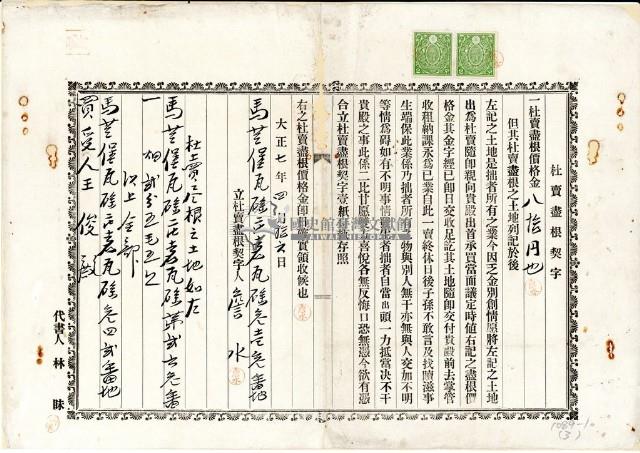 杜賣盡根契字
一杜賣盡根價格金八拾円也
但其杜賣盡根之土地列記於後
左記之土地是拙者所有之業今因乏金別創情愿將左記之土地
出為杜賣隨即親向貴殿出首承買當面議定時值右記之盡根價
格金其金字經已即日交收足記其土地隨即交付貴殿前去掌管
收租納課永為己業自此一賣終休日後子孫不敢言及找贖滋事
生端保此業係乃拙者所 物與別人無干亦無與人交加不明
等情為碍如有不明事情 者拙者自當出頭一力抵當决不干
貴殿之事此係二比甘愿 喜悅各無反悔口恐無憑今欲有憑
合立杜賣盡根契字壹紙 存照
右之杜賣盡根價格金即 實領收候也
大正七年四月拾六日
馬芝堡瓦磘庄 瓦磘 番地
立杜賣盡根契字人 詹水
杜賣盡根之土地如左
馬芝堡瓦磘庄 瓦磘第 番
一畑貳分五毛五
以上全部
馬芝堡瓦磘庄 瓦磘 四貳番地
買受人王俊
代書人 林
國史館臺灣文獻館
1089-10
(3)